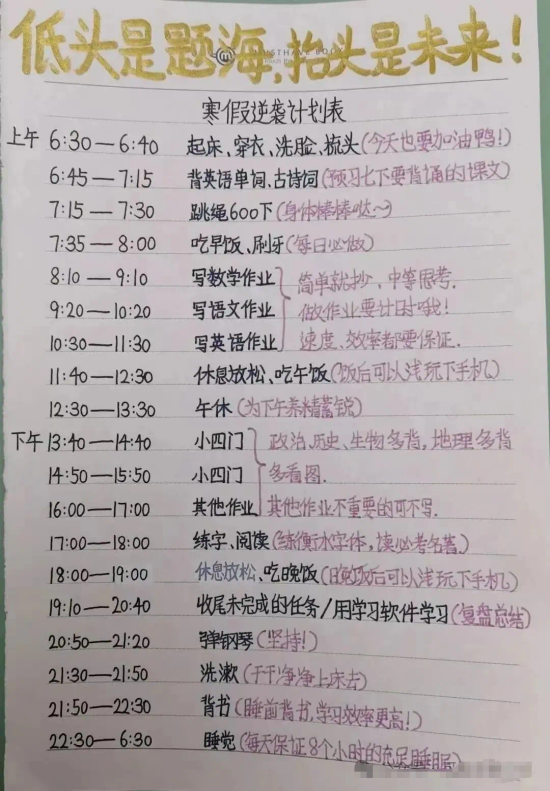 低头是题海,抬头是未来!
寒假逆袭计划表
上午 6:30—6:40 起床、穿衣、洗脸、梳头(今天也要加油鸭!)
6:45—7:15 背英语单词、古诗词(预习七下要背诵的课文)
7:15—7:30 跳绳600下(身体棒棒哒~)
7:35—8:00 吃早饭、刷牙(每日必做)
8:10—9:10 写数学作业 简单就抄、中等思考.
9:20—10:20 写语文作业 做作业要计时哦!
10:30—11:30 写英语作业 速度、效率都要保证.
11:40—12:30 休息放松、吃午饭(饭后可以浅玩下手机)
12:30—13:30 午休(为下午养精蓄锐)
下午 13:40—14:40 小四门 政治、历史、生物多背,地理多背
14:50—15:50 小四门 多看图.
16:00—17:00 其他作业 其他作业不重要的可不写.
17:00—18:00 练字、阅读(练衡水字体,读必考名著)
18:00—19:00 休息放松、吃晚饭(晚饭后可以浅玩下手机)
19:10—20:40 收尾未完成的任务/用学习软件学习(复盘总结)
20:50—21:20 弹钢琴(坚持!)
21:30—21:50 洗漱(干干净净上床去)
21:50—22:30 背书(睡前背书,学习效率更高!)
22:30—6:30 睡觉(每天保证8个小时的充足睡眠)